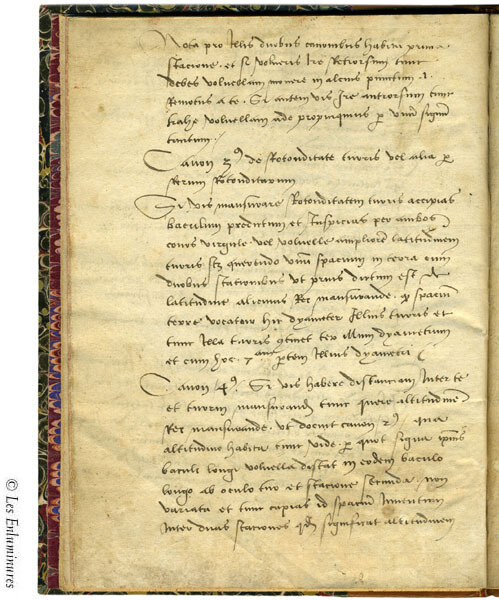 Nota pro illis duobus canonibus habita prima
stacione. et si volueris ire retrorsum tunc
debes voluellam movere in alcius punctum .1.
remotius a te. Si autem vis ire antrorsum tunc
trahe voluellam ade propinquius per unum signum
tantum.
Canon 39 de rotonditate turris vel alia
rerum rotonditatum
Si vis mansurare rotonditatem turris accipias
baculum predentum et inspicias per ambos
conos virgule vel voluelle ampliorem latitudinem
turris scz querendo unum spacium in terra cum
duobus stationibus ut prius dictum est de
latitudine alicuius rei mansurande. spacium
terre vocatur hic dyameter illius turris et
tunc illa turris continet ter illum dyametrum
et cum hoc 7 partem illius dyametri
Canon 49. Si vis habere distanciam inter te
et turrim mansurandam tunc quere altitudinem
rei mansurande. ut docuit canon 29. qua
altitudine habita tunc vide per quot signa
baculi longi voluella distat in eodem baculo
longo ab oculo tuo et stacione secunda. non
variata et tunc capias id spacium inventum
inter duas staciones significat altitudinem
© Les Enluminures